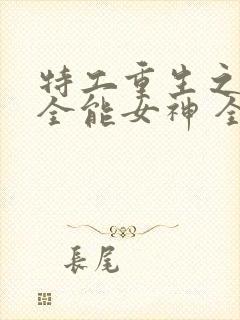 特工重生之
全能女神 全
長尾